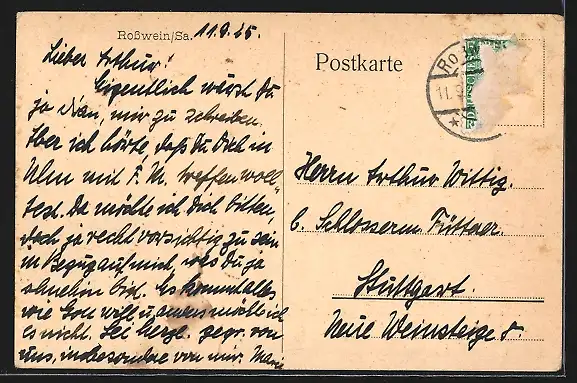 Roßwein/Sa. 11.9.25.
Lieber Arthur!
Eigentlich wärst Du
ja dran, mir zu schreiben.
Aber ich hörte, daß Du Dich in
Ulm mit F. M. treffen woll-
test. Da möchte ich Dich bitten,
doch ja recht vorsichtig zu sein
in Bezug auf mich, was Du ja
ohnehin bist. Es kommt alles
wie Gott will u. anders möcht ich
es nicht. Sei herzl. gegr. von
uns, insbesondere von mir. Marie
Postkarte
Ro
11.9
Herrn Arthur Wittig.
b. Schlosserm. Fütterer.
Stuttgart.
Neue Weinsteige 8